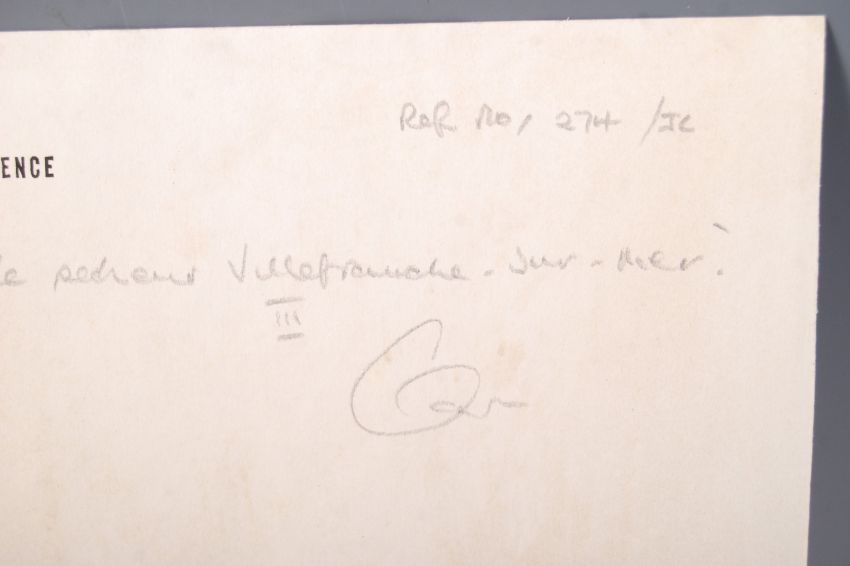 Ref No, 274 /JC
ENCE
pecheur Villefranche-sur-Mer.
III